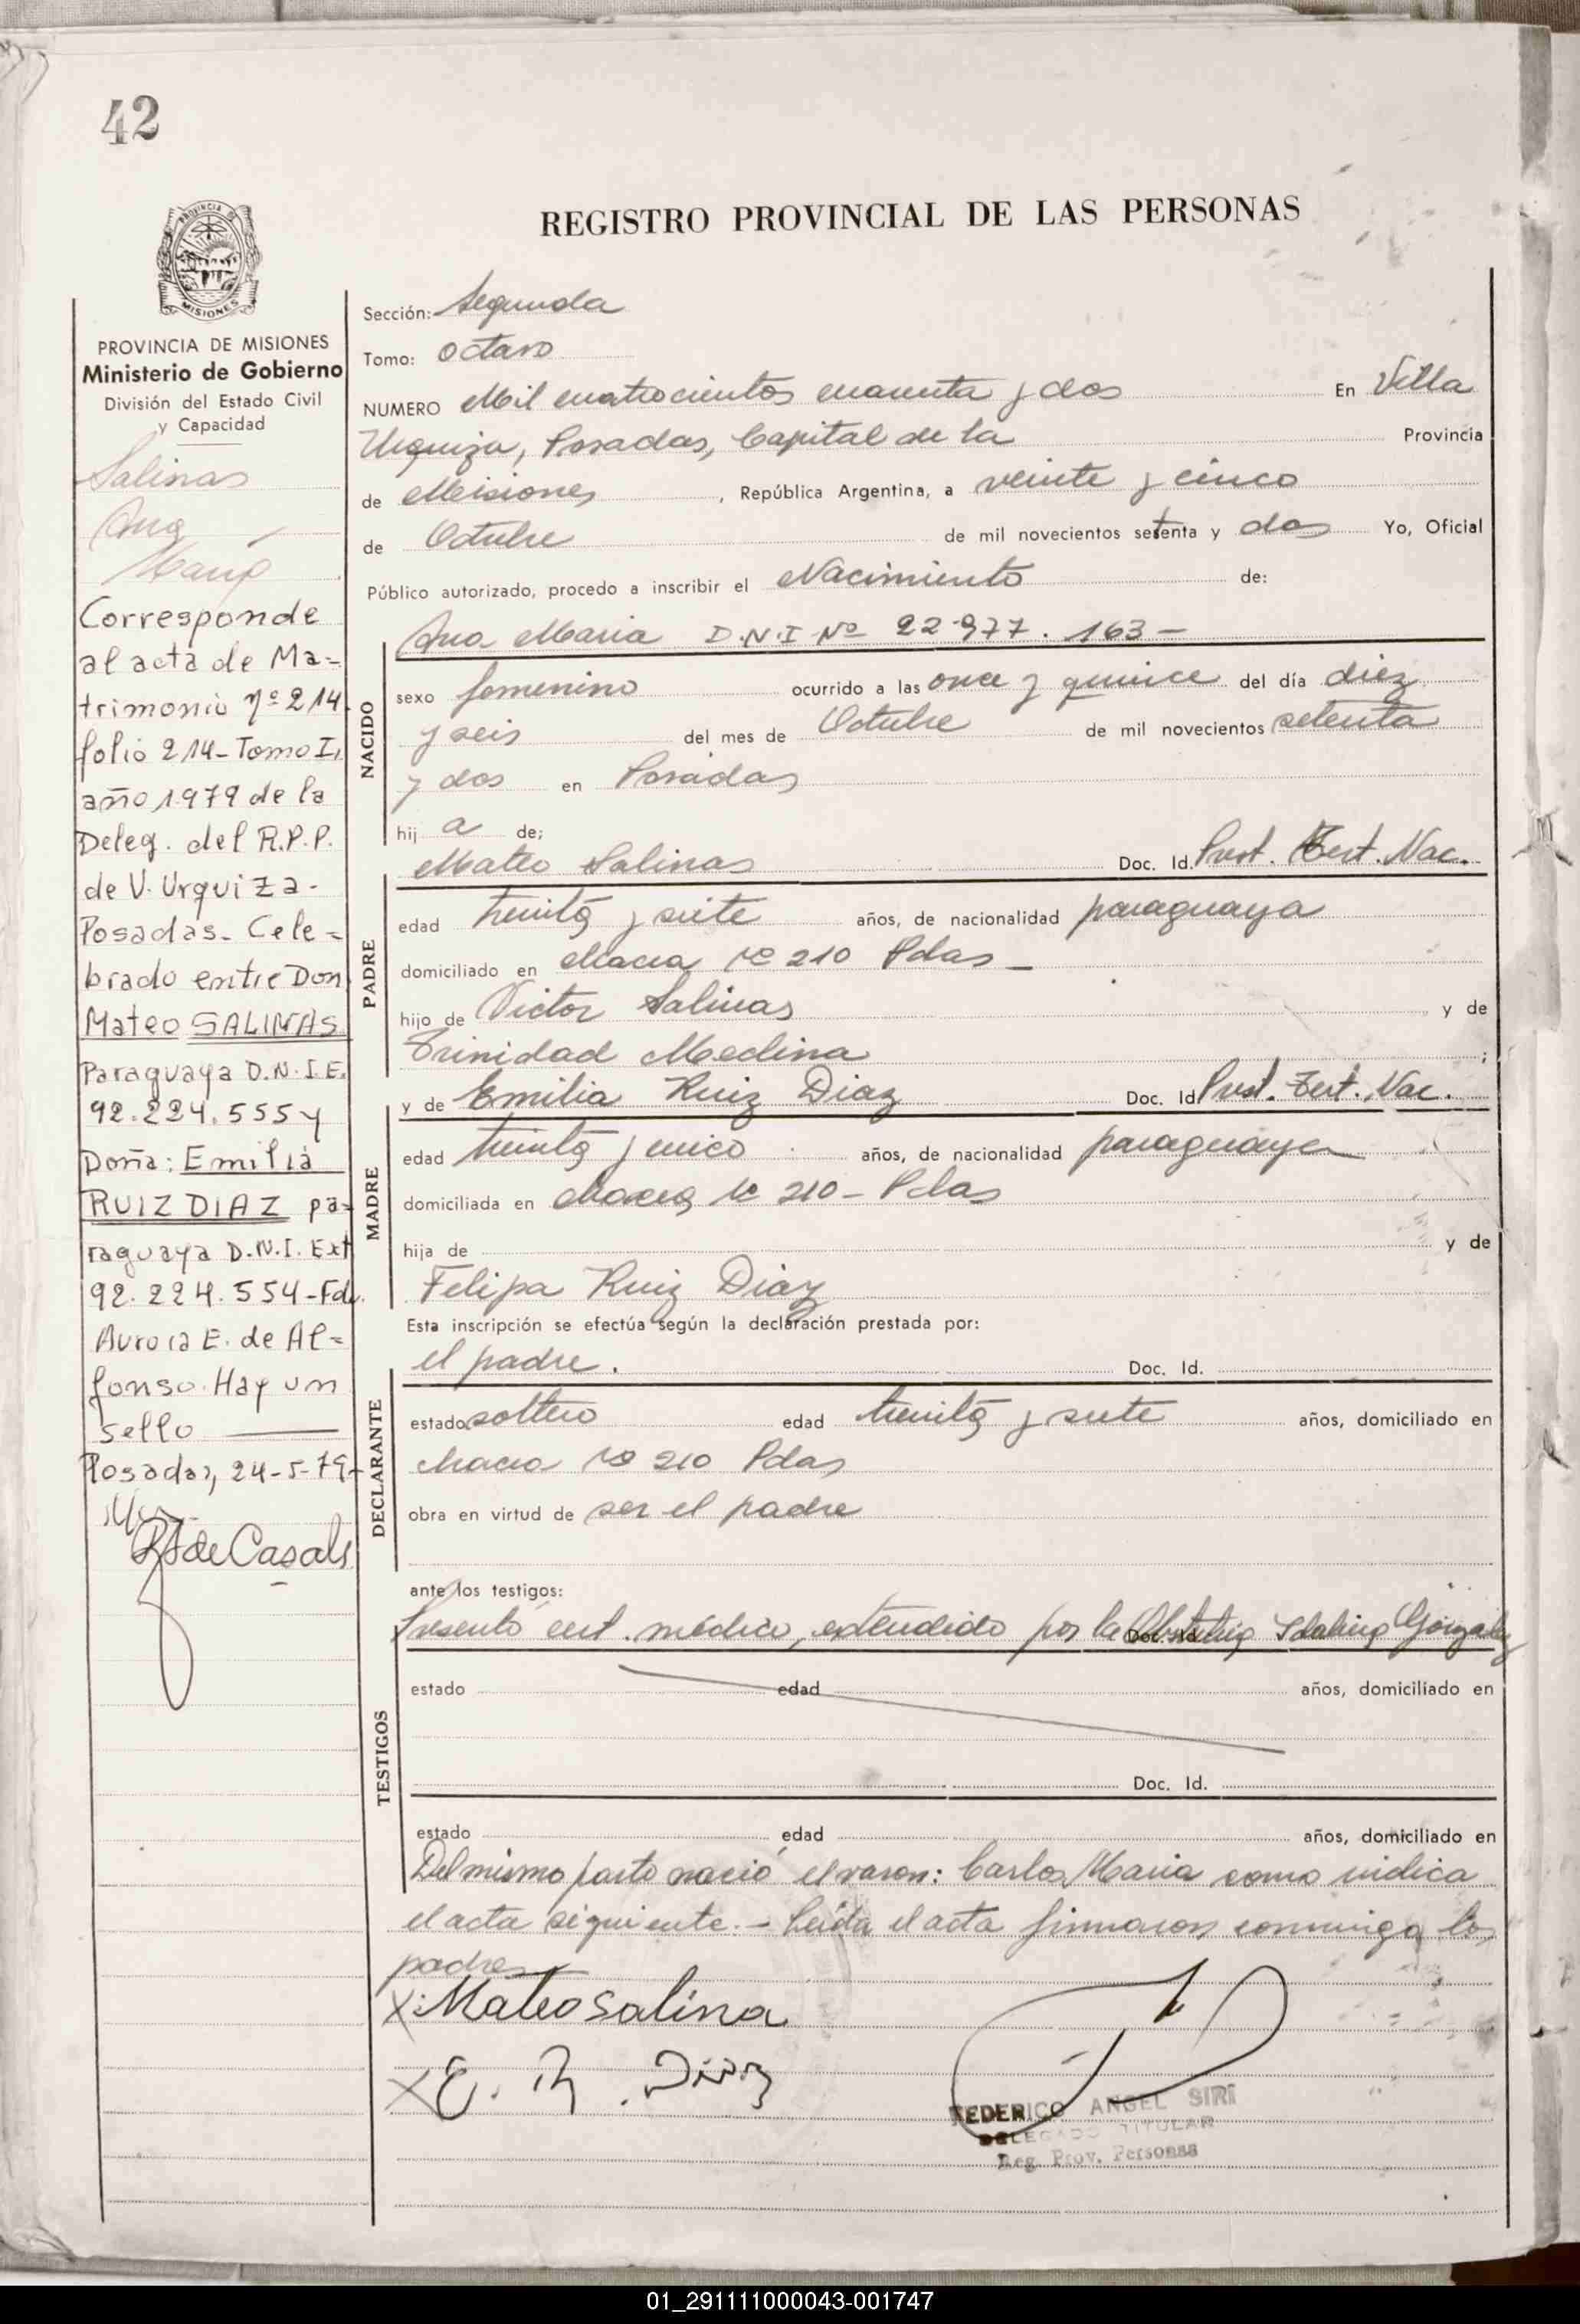 42
REGISTRO PROVINCIAL DE LAS PERSONAS
PROVINCIA DE
MISIONES
PROVINCIA DE MISIONES
Ministerio de Gobierno
División del Estado Civil
y Capacidad
Salinas
Ana
María
Corresponde
al acta de Ma-
trimonio nº 214
folio 214- Tomo I,
año 1979 de la
Deleg. del R.P.P.
de V. Urquiza-
Posadas. Cele=
brado entre Don
Mateo SALINAS
Paraguaya D.N.I.E.
92.224.555 y
Doña: Emilia
RUIZ DIAZ pa-
raguaya D.N.I. Ext
92.224.554-Fdo.
Aurora E. de Al=
fonso. Hay un
sello
Posadas, 24-5-79-
de Casals
Sección: Segunda
Tomo: octavo
NUMERO Mil cuatrocientos cuarenta y dos En Villa
Urquiza, Posadas, Capital de la Provincia
de Misiones, República Argentina, a veinte y cinco
de Octubre de mil novecientos setenta y dos Yo, Oficial
Público autorizado, procedo a inscribir el Nacimiento de:
Ana Maria D.N.I Nº 22.977.163-
NACIDO
sexo femenino ocurrido a las once y quince del día diez
y seis del mes de Octubre de mil novecientos setenta
y dos en Posadas
hij a de;
Mateo Salinas Doc. Id. Prest. Cert. Nac.
PADRE
edad treinta y siete años, de nacionalidad paraguaya
domiciliado en Chacra Nº 210 Pdas-
hijo de Victor Salinas y de
Trinidad Medina ;
y de Emilia Ruiz Diaz Doc. Id Prest. Cert. Nac.
MADRE
edad treinta y cinco años, de nacionalidad paraguaya
domiciliada en Chacra Nº 210- Pdas
hija de y de
Felipa Ruiz Diaz
Esta inscripción se efectúa según la declaración prestada por:
el padre. Doc. Id.
DECLARANTE
estado soltero edad treinta y siete años, domiciliado en
Chacra Nº 210 Pdas
obra en virtud de ser el padre
ante los testigos:
Presentó cert. médico, extendido por la Obstetriz Idalina González
Doc. Id.
TESTIGOS
estado edad años, domiciliado en
Doc. Id.
estado edad años, domiciliado en
Del mismo parto nació el varon: Carlos Maria como indica
el acta siguiente.- Leída el acta firmaron conmigo los
padres
X: Mateo Salina
X E. R. Diaz
FEDERICO ANGEL SIRI
DELEGADO TITULAR
Reg. Prov. Personas
01_291111000043-001747